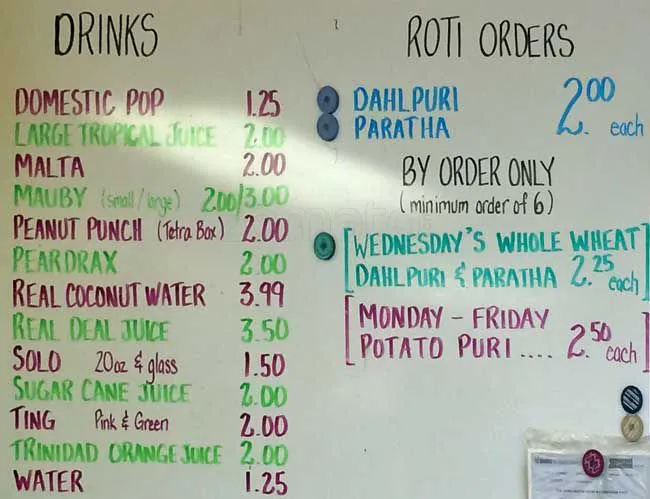 DRINKS
DOMESTIC POP 1.25
LARGE TROPICAL JUICE 2.00
MALTA 2.00
MAUBY (small/large) 2.00/3.00
PEANUT PUNCH (Tetra Box) 2.00
PEARDRAX 2.00
REAL COCONUT WATER 3.99
REAL DEAL JUICE 3.50
SOLO 20oz & glass 1.50
SUGAR CANE JUICE 2.00
TING Pink & Green 2.00
TRINIDAD ORANGE JUICE 2.00
WATER 1.25
ROTI ORDERS
DAHLPURI
PARATHA 2.00 each
BY ORDER ONLY
(minimum order of 6)
[WEDNESDAY'S WHOLE WHEAT]
DAHLPURI & PARATHA 2.25 each
[MONDAY - FRIDAY
POTATO PURI .... 2.50 each]